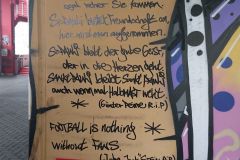 egal woher Sie kommen.
St. Pauli bietet Freundschaft an,
hier wird man aufgenommen.
St. Pauli bleibt der gute Geist
der in die Herzen geht.
Sankt Pauli bleibt Sankt Pauli
auch wenn mal Halbmast weht
(Günter Peine R.I.P)
FOOTBALL is nothing
without FANS.